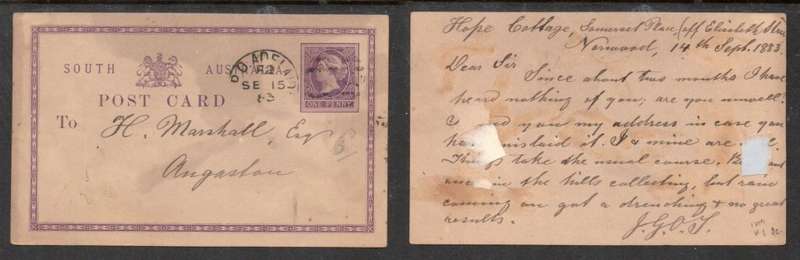 SOUTH AUSTRALIA
POST CARD
G.P.O. ADELAIDE
SE 15
83
ONE PENNY
To H. Marshall, Esq
Angaston
Hope Cottage, Somerset Place, (off Elizabeth
Norwood, 14th Sept. 1883.
Dear Sir
Since about two months I have
heard nothing of you; are you unwell.
I you my address in case you
mislaid it. I & mine are
take the usual course.
in the hills collecting, but rain
coming on got a drenching & no great
results.
J.G.O.T.